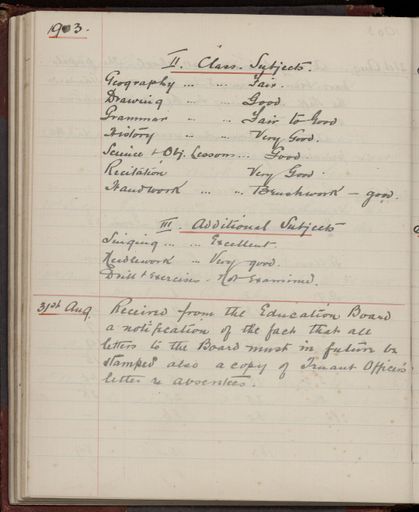 1903.
II. Class. Subjects.
Geography ... ... Fair.
Drawing ... ... Good
Grammar ... ... Fair to Good
History ... ... Very Good.
Science & Obj. Lessons ... Good
Recitation Very Good
Handwork ... ... Brushwork - good.
III. Additional Subjects
Singing ... ... Excellent.
Needlework ... Very good.
Drill & Exercises - Not Examined.
31st Aug. Received from the Education Board
a notification of the fact that all
letters to the Board must in future be
stamped also a copy of Truant Officer's
letter re absentees.